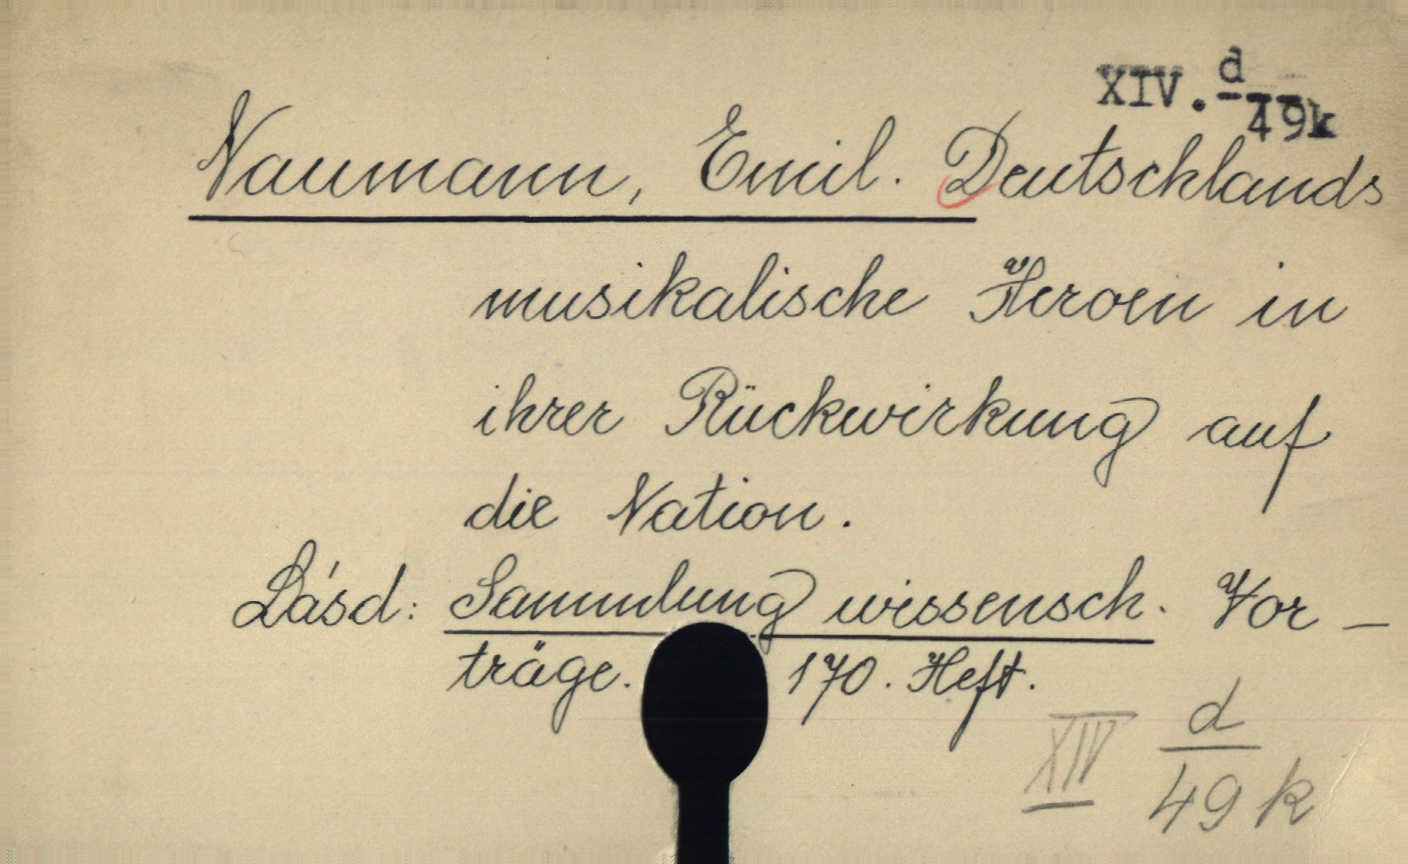 XIV. d
49k
Naumann, Emil. Deutschlands
musikalische Heroen in
ihrer Rückwirkung auf
die Nation.
Lásd: Sammlung wissensch. Vor-
träge. 170. Heft.
XIV d
49 k